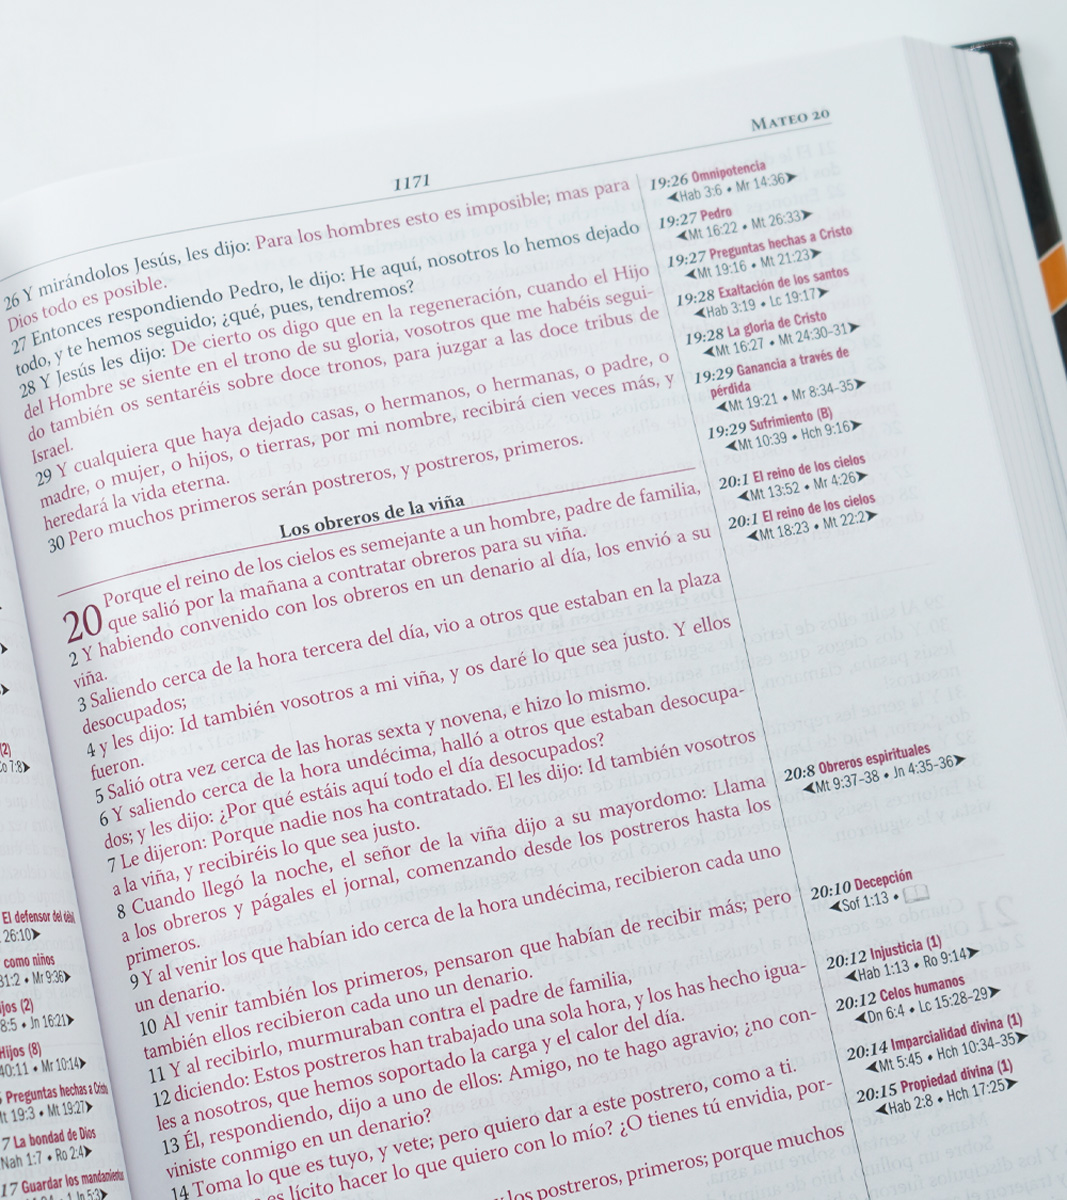 MATEO 20
1171
26 Y mirándolos Jesús, les dijo: Para los hombres esto es imposible; mas para
Dios todo es posible.
27 Entonces respondiendo Pedro, le dijo: He aquí, nosotros lo hemos dejado
todo, y te hemos seguido; ¿qué, pues, tendremos?
28 Y Jesús les dijo: De cierto os digo que en la regeneración, cuando el Hijo
del Hombre se siente en el trono de su gloria, vosotros que me habéis segui-
do también os sentaréis sobre doce tronos, para juzgar a las doce tribus de
Israel.
29 Y cualquiera que haya dejado casas, o hermanos, o hermanas, o padre, o
madre, o mujer, o hijos, o tierras, por mi nombre, recibirá cien veces más, y
heredará la vida eterna.
30 Pero muchos primeros serán postreros, y postreros, primeros.
Los obreros de la viña
20 Porque el reino de los cielos es semejante a un hombre, padre de familia,
que salió por la mañana a contratar obreros para su viña.
2 Y habiendo convenido con los obreros en un denario al día, los envió a su
viña.
3 Saliendo cerca de la hora tercera del día, vio a otros que estaban en la plaza
desocupados;
4 y les dijo: Id también vosotros a mi viña, y os daré lo que sea justo. Y ellos
fueron.
5 Salió otra vez cerca de las horas sexta y novena, e hizo lo mismo.
6 Y saliendo cerca de la hora undécima, halló a otros que estaban desocupa-
dos; y les dijo: ¿Por qué estáis aquí todo el día desocupados?
7 Le dijeron: Porque nadie nos ha contratado. El les dijo: Id también vosotros
a la viña, y recibiréis lo que sea justo.
8 Cuando llegó la noche, el señor de la viña dijo a su mayordomo: Llama
a los obreros y págales el jornal, comenzando desde los postreros hasta los
primeros.
9 Y al venir los que habían ido cerca de la hora undécima, recibieron cada uno
un denario.
10 Al venir también los primeros, pensaron que habían de recibir más; pero
también ellos recibieron cada uno un denario.
11 Y al recibirlo, murmuraban contra el padre de familia,
12 diciendo: Estos postreros han trabajado una sola hora, y los has hecho igua-
les a nosotros, que hemos soportado la carga y el calor del día.
13 Él, respondiendo, dijo a uno de ellos: Amigo, no te hago agravio; ¿no con-
viniste conmigo en un denario?
14 Toma lo que es tuyo, y vete; pero quiero dar a este postrero, como a ti.
es lícito hacer lo que quiero con lo mío? ¿O tienes tú envidia, por-
los postreros, primeros; porque muchos
19:26 Omnipotencia
Hab 3:6 • Mr 14:36
19:27 Pedro
Mt 16:22 • Mt 26:33
19:27 Preguntas hechas a Cristo
Mt 19:16 • Mt 21:23
19:28 Exaltación de los santos
Hab 3:19 • Lc 19:17
19:28 La gloria de Cristo
Mt 16:27 • Mt 24:30-31
19:29 Ganancia a través de
pérdida
Mt 19:21 • Mr 8:34-35
19:29 Sufrimiento (B)
Mt 10:39 • Hch 9:16
20:1 El reino de los cielos
Mt 13:52 • Mr 4:26
20:1 El reino de los cielos
Mt 18:23 • Mt 22:2
20:8 Obreros espirituales
Mt 9:37-38 • Jn 4:35-36
20:10 Decepción
Sof 1:13 •
20:12 Injusticia (1)
Hab 1:13 • Ro 9:14
20:12 Celos humanos
Dn 6:4 • Lc 15:28-29
20:14 Imparcialidad divina (1)
Mt 5:45 • Hch 10:34-35
20:15 Propiedad divina (1)
Hab 2:8 • Hch 17:25
(2)
Co 7:8
El defensor del
26:10
como niños
31:2 • Mr 9:36
(2)
8:5 • Jn 16:21
Hijos (8)
40:11 • Mr 10:14
Preguntas hechas a
19:3 • Mt 19:27
7 La bondad de Dios
Nah 1:7 • Ro 2:4
17 Guardar los